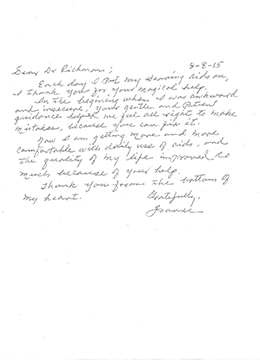 Dear Dr Richman; 8-8-15
Each day I Put my Hearing aids on,
I thank you for your magical help.
In the begining when I was awkward
and insecure, your gentle and Patient
guidance helped me feel all right to make
mistakes, because you can fix it.
Now I am getting More and more
comfortable with daily use of aids, and
the quality of my life improved so
much because of your help.
Thank you from the bottom of
my heart. Gratefully,
Joanne